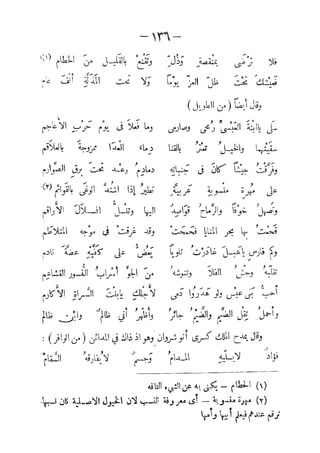 — ١٣٦ —
فلا ترضى بمنقصة وذل وتقنع بالقليل من الحطام (١)
فعيشك تحت ظل العز يوما ولا تحت المذلة ألف عام
وقال أيضا (من الطويل)
سلي يا ابنة العبسي رمحي وصارمي وما فعلا في يوم حرب الأعاجم
سقيتها والخيل تعثر بالقنا دماء العدا ممزوجة بالعلاقم
وفرقت جيشا كان في جنباته دمادم رعد تحت برق الصوارم
على مهرة منسوبة عربية تطير إذا اشتد الوغى بالقوائم (٢)
وتصهل خوفا والرماح قواصد اليها وتنسل انسلال الأراقم
قحمت بها بحر المنايا فحمحمت وقد غرقت في موجه المتلاطم
وكم فارس يا عبل غادرت ثاويا يعض على كفيه عضة نادم
تقلبه وحش الفلا وتنوشه من الجو أسراب النسور القشاعم
أحب بني عبس ولو هدروا دمي لأجلك يا بنت السراة الأكارم
وأحمل ثقل الضيم والضيم جائر وأظهر أني ظالم وابن ظالم
وقال يمدح الملك كسرى أنو شروان وهو اذ ذاك في المدائن (من الوافر) :
فؤاد لا يسليه المدام وجسم لا يفارقه السقام
(١) الحطام — يكنى به عن الشيء التافه
(٢) مهرة منسوبة — أى معروفة النسب لان الخيول الاصلية كان نسبها
ترقم عندهم فيعلم أبيها وأمها